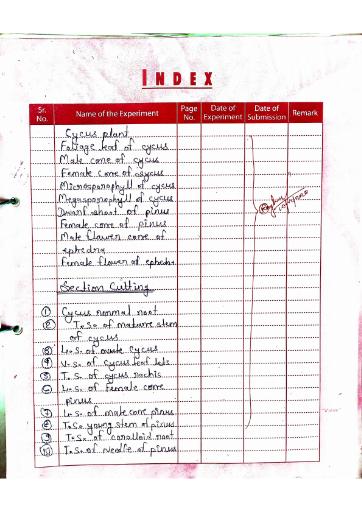 INDEX
Sr. No. Name of the Experiment Page No. Date of Experiment Date of Submission Remark
Cycus plant
Foliage leaf of cycus
Male cone of cycus
Female cone of cycus
Microsporophyll of cycus
Megasporophyll of cycus
Dwarf shoot of pinus
Female cone of pinus
Male flower cone of
ephedra
Female flower of ephedra
Section Cutting
① Cycus normal root
② T.S. of mature stem
of cycus
③ L.S. of ovule cycus
④ V.S. of cycus leaf lets
⑤ T.S. of cycus rachis
⑥ L.S. of Female cone
pinus
⑦ L.S. of male cone pinus
⑧ T.S. young stem of pinus
⑨ T.S. of coralloid root
⑩ T.S. of needle of pinus